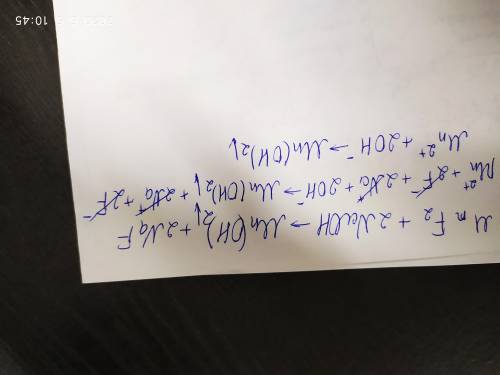 MnF₂ + 2NaOH → Mn(OH)₂↓ + 2NaF
Mn²⁺ + 2F⁻ + 2Na⁺ + 2OH⁻ → Mn(OH)₂↓ + 2Na⁺ + 2F⁻
Mn²⁺ + 2OH⁻ → Mn(OH)₂↓